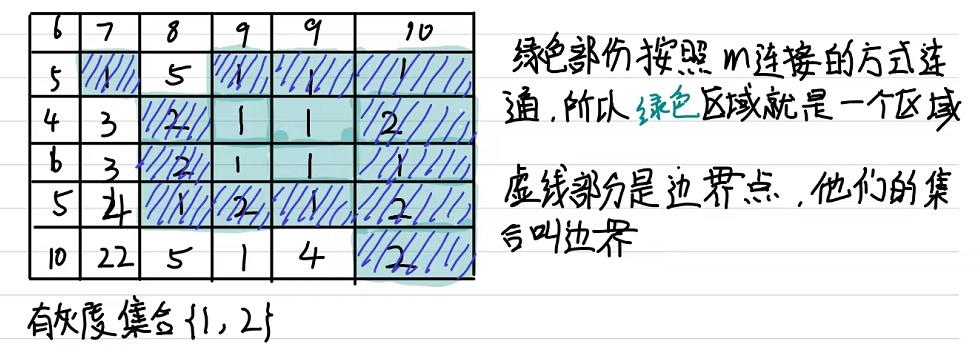 6 7 8 9 9 10
5 1 5 1 1 1
4 3 2 1 1 2
6 3 2 1 1 1
5 1 2 1 2
10 22 5 1 4 2
有灰度集合{1,2}
绿色部份按照m连接的方式连
通,所以绿色区域就是一个区域
虚线部分是边界点,他们的集
合叫边界